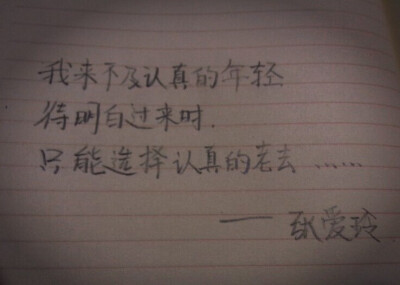 我来不及认真的年轻
待明白过来时.
只能选择认真的老去……
——张爱玲